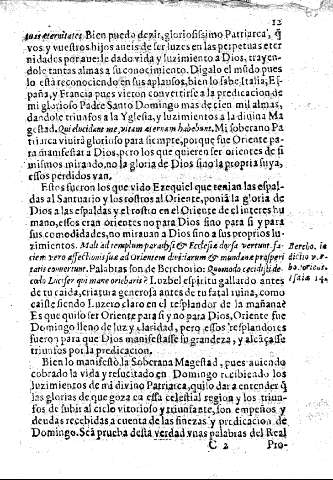 12
tuas æternitates. Bien puedo dezir, gloriosissimo Patriarca, q̃
vos y vuestros hijos aueis de ser luzes en las perpetuas eter
nidades por auerle dado vida y luzimiento a Dios, trayen-
dole tantas almas a su conocimiento. Digalo el mũdo pues
lo està reconociendo en sus aplausos, bien lo sabe Italia, Es-
paña, y Francia pues vieron conuertirse a la predicacion de
mi glorioso Padre Santo Domingo mas de cien mil almas,
dandole triunfos a la Yglesia, y luzimientos a la diuina Ma
gestad. Qui elucidant me, vitam æternam habebunt. Mi soberano Pa
triarca viuirà glorioso para siempre, porque fue Oriente pa-
ra manifestar a Dios, pero los que quieren ser orientes de si
mismos mirando, no la gloria de Dios sino la propria suya,
essos perdidos van.
Estos fueron los que vido Ezequiel que tenian las espal-
das al Santuario y los rostros al Oriente, ponia la gloria de
Dios a las espaldas y el rostro en el Oriente de el interes hu
mano, essos eran orientes no para Dios sino para si y para
sus comedidades, no mirauan a Dios sino a sus proprios lu-
zimientos. Mali ad templum paradysi & Ecclesiæ dorsa vertunt fa-
ciem vero affectionis suæ ad Orientem diuitiarum & mundanæ prosperi
tatis conuertunt. Palabras son de Berchorio: Quomodo cecidisti de
cœlo Lucifer qui mane oriebaris? Luzbel espiritu gallardo antes
de tu caida, criatura generosa antes de tu fatal ruina, como
caiste siendo Luzero claro en el resplandor de la mañana?
Es que quiso ser Oriente para si y no para Dios, Oriente fue
Domingo lleno de luz y claridad, pero essos resplandores
fueron para que Dios manifestasse su grandeza, y alcãçasse
triunfos por la predicacion.
Bien lo manifestò la Soberana Magestad, pues auiendo
cobrado la vida y resucitado en Domingo recibiendo los
luzimientos de mi diuino Patriarca, quiso dar a entender q̃
las glorias de que goza en essa celestial region y los triun-
fos de subir al cielo vitorioso y triunfante, son empeños y
deudas recebidas a cuenta de las finezas y predicacion de
Domingo. Serà prueba desta verdad vnas palabras del Real
C 2 Pro-
Bercho. in
Isaiæ 14.